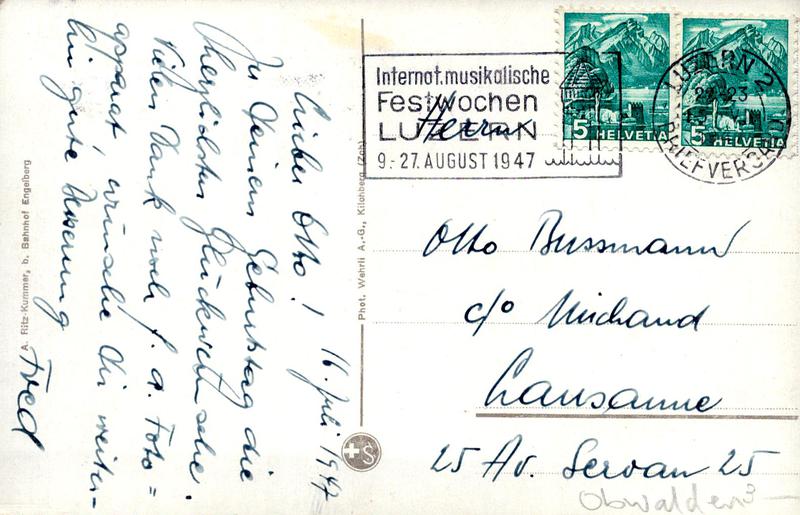 Lieber Otto! 16. Juli 1947
Zu Deinem Geburtstag die
herzlichsten Glückwünsche.
Vielen Dank noch f. d. Foto=
apparat, wünsche Dir weiter-
hin gute Besserung
Fred
A. Ritz-Kummer, b. Bahnhof Engelberg
Phot. Wehrli A.-G., Kilchberg (Zch)
Internat. musikalische
Festwochen
LUZERN
9.-27. AUGUST 1947
5 HELVETIA
5 HELVETIA
LUZERN 2
BRIEFVERSAND
Herrn
Otto Bussmann
c/o Michaud
Lausanne
25 Av. Servan 25
Obwalden